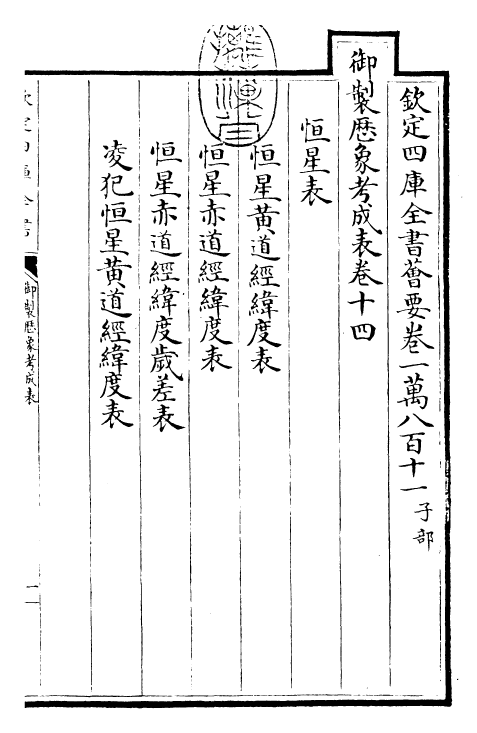 欽定四庫全書薈要卷一萬八百十一 子部
御製歴象考成表卷十四
恒星表
恒星黄道經緯度表
恒星赤道經緯度表
恒星赤道經緯度歲差表
凌犯恒星黄道經緯度表
御製歴象考成表
一